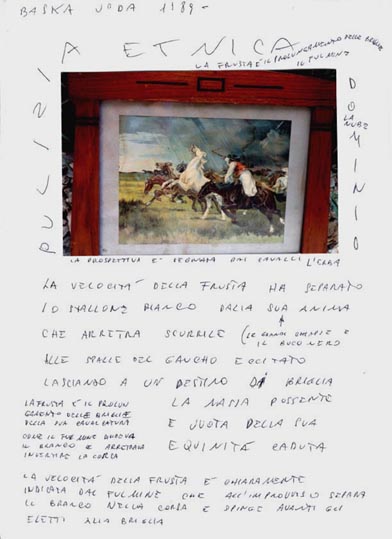 BASKA VODA 1989-
PULIZIA ETNICA
LA FRUSTA È IL PROLUNGAMENTO DELLE BRIGLIE
IL FULMINE
DOMINIO
LA NUBE
LA PROSPETTIVA E' SEGNATA DAI CAVALLI L'ERBA
LA VELOCITA' DELLA FRUSTA HA SEPARATO
LO STALLONE BIANCO DALLA SUA ANIMA
CHE ARRETRA SCURRILE (LE GRANDI E IL BUCO NERO
ALLE SPALLE DEL GAUCHO ECCITATO
LASCIANDO A UN DESTINO DI BRIGLIA
LA FRUSTA È IL PROLUN
GAMENTO DELLE BRIGLIE
DELLA SUA CAVALCATURA
COME IL FULMINE
IL BRANCO E ARRETRARE
INVERTIRE LA CORSA
LA MASSA POSSENTE
E VUOTA DELLA SUA
EQUINITÀ CADUTA
LA VELOCITÀ DELLA FRUSTA E' CHIARAMENTE
INDICATA DAL FULMINE CHE ALL'IMPROVVISO SEPARA
IL BRANCO NELLA CORSA E SPINGE AVANTI GLI
ELETTI ALLA BRIGLIA